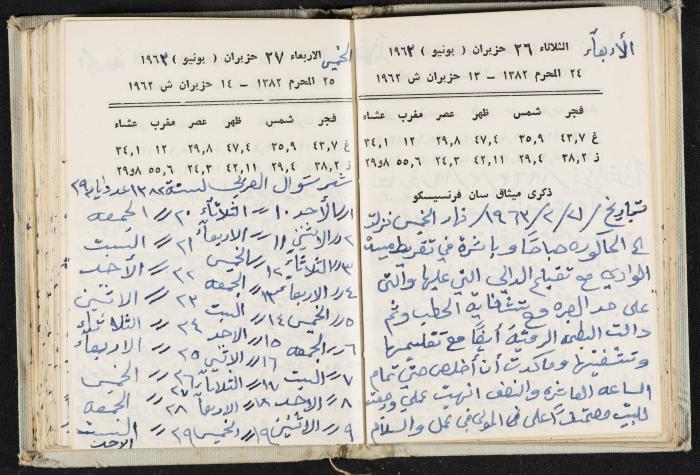 الأربعاء
الثلاثاء ٢٦ حزيران ( يونيو ) ١٩٦٣
٢٤ المحرم ١٣٨٢ – ١٣ حزيران ش ١٩٦٢
فجر شمس ظهر عصر مغرب عشاء
غ ٤٣,٧ ٣٥,٩ ٤٧,٤ ٢٩,٨ ١٢ ٣٤,١
ز ٣٨,٢ ٢٩,٤ ٤٢,١١ ٢٤,٣ ٥٥,٦ ٢٩و٨
ذكرى ميثاق سان فرنسيسكو
بتاريخ / ٢١ / ٢ / ١٩٦٣ / نهار الخميس نزلت
الى الحاكوره صباحًا وباشرة في
الوادي مع تقباع الدالي التي عليها والتي
على حد مع تشفاية الحطب وثم
دالت مع تقليمها
وتشفيتها وماكدت أن أخلص حتى تمام
الساعه العاشره والنصف انهيت عملي ورجعت
للبيت في عمل والسلام
الخميس
الاربعاء ٢٧ حزيران ( يونيو ) ١٩٦٣
٢٥ المحرم ١٣٨٢ – ١٤ حزيران ش ١٩٦٢
فجر شمس ظهر عصر مغرب عشاء
غ ٤٣,٧ ٣٥,٩ ٤٧,٤ ٢٩,٨ ١٢ ٣٤,١
ز ٣٨,٢ ٢٩,٤ ٤٢,١١ ٢٤,٣ ٥٥,٦ ٢٩و٨
شهر شوال العربي لسنة ١٣٨٢ عدد ايامه ٢٩
١ // الأحد ١٠ // الثلاثاء ٢٠ // الجمعه
٢ // الاثنين ١١ // الاربعاء ٢١ // السبت
٣ // الثلاثاء ١٢ // الخميس ٢٢ // الأحد
٤ // الاربعاء ١٣ // الجمعه ٢٣ // الاثنين
٥ // الخميس ١٤ // السبت ٢٤ // الثلاثاء
٦ // الجمعه ١٥ // الاحد ٢٥ // الاربعاء
٧ // السبت ١٦ // الاثنين ٢٦ // الخميس
٨ // الاحد ١٧ // الثلاثاء ٢٧ // الجمعه
٩ // الاثنين ١٨ // الاربعاء ٢٨ // السبت
١٩ // الخميس ٢٩ // الاحد